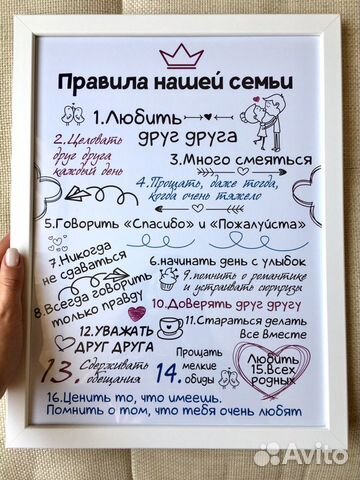 Правила нашей семьи
1.Любить
друг друга
2.Целовать
друг друга
каждый день
3.Много смеяться
4.Прощать, даже тогда,
когда очень тяжело
5.Говорить «Спасибо» и «Пожалуйста»
7.Никогда
не сдаваться
6.начинать день с улыбок
8.Всегда говорить
только правду
9.помнить о романтике
и устраивать сюрпризы
10.Доверять друг другу
11.Стараться делать
Все Вместе
12.УВАЖАТЬ
ДРУГ ДРУГА
13. Сдерживать
обещания
14. Прощать
мелкие
обиды
Любить
15.Всех
родных
16.Ценить то, что имеешь.
Помнить о том, что тебя очень любят
Avito